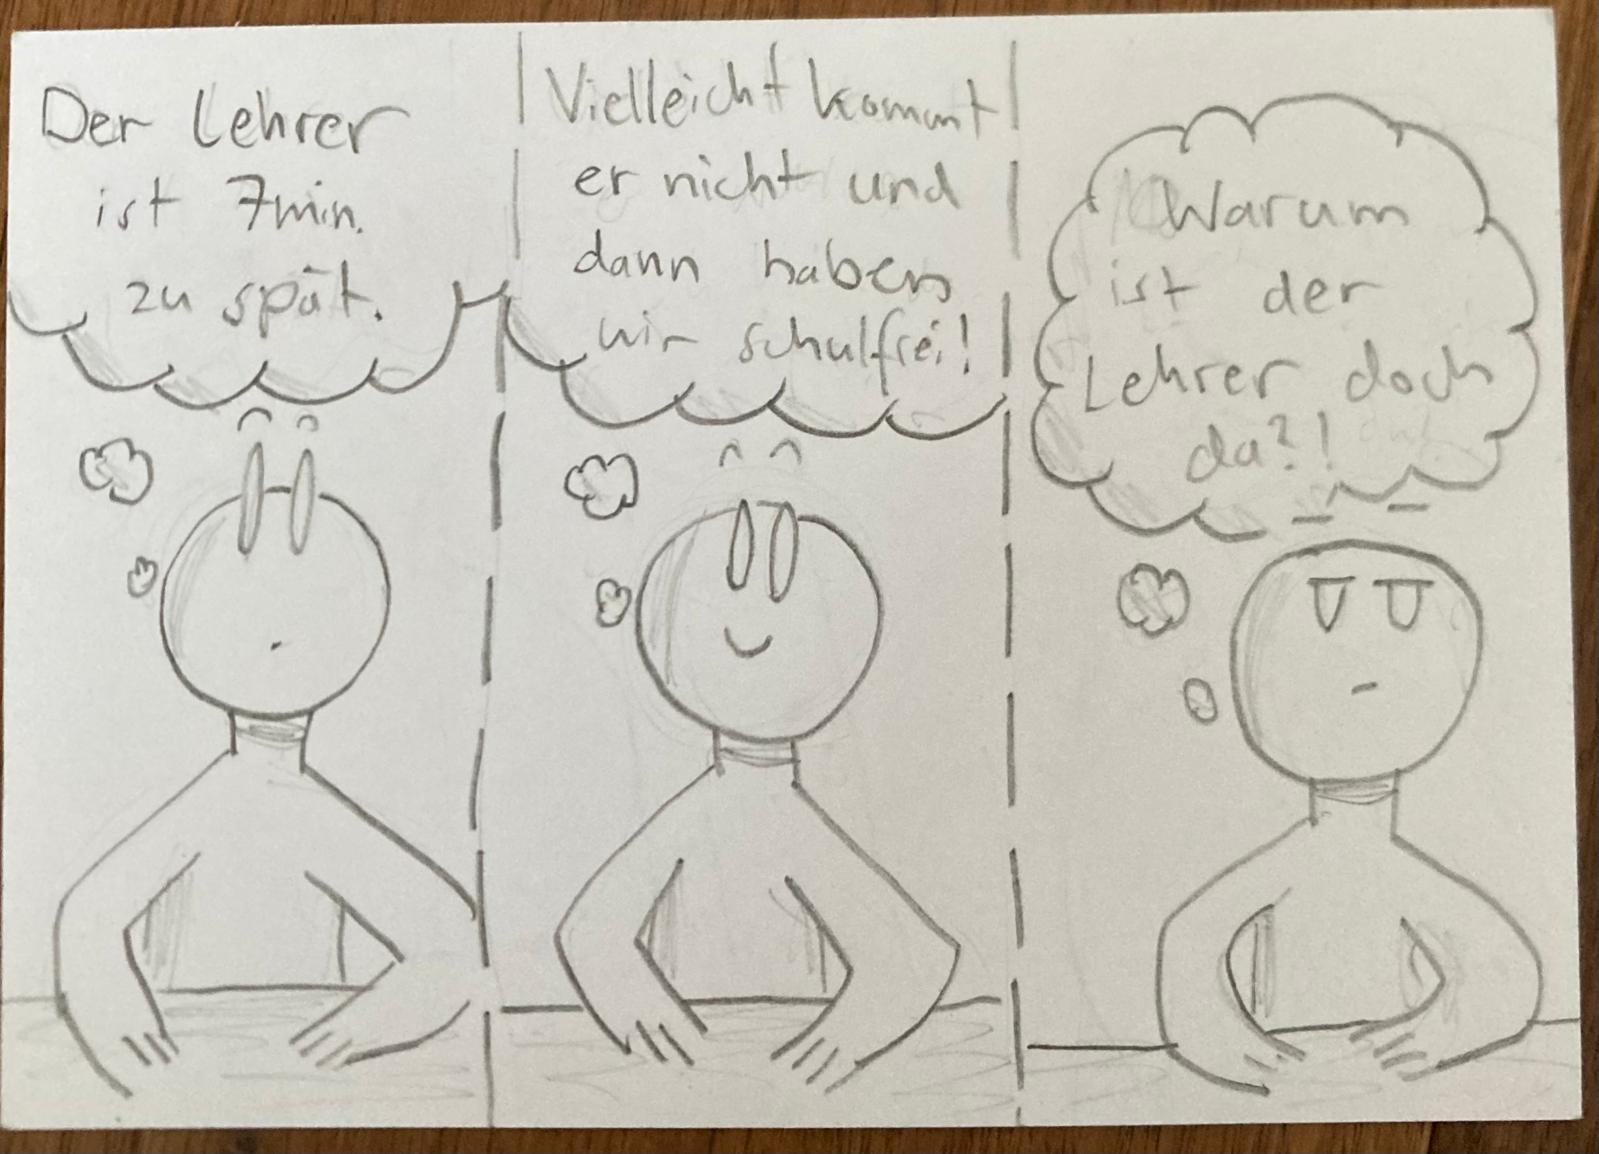 Der Lehrer
ist 7min.
zu spät.
Vielleicht kommt
er nicht und
dann haben
wir schulfrei!
Warum
ist der
Lehrer doch
da?!